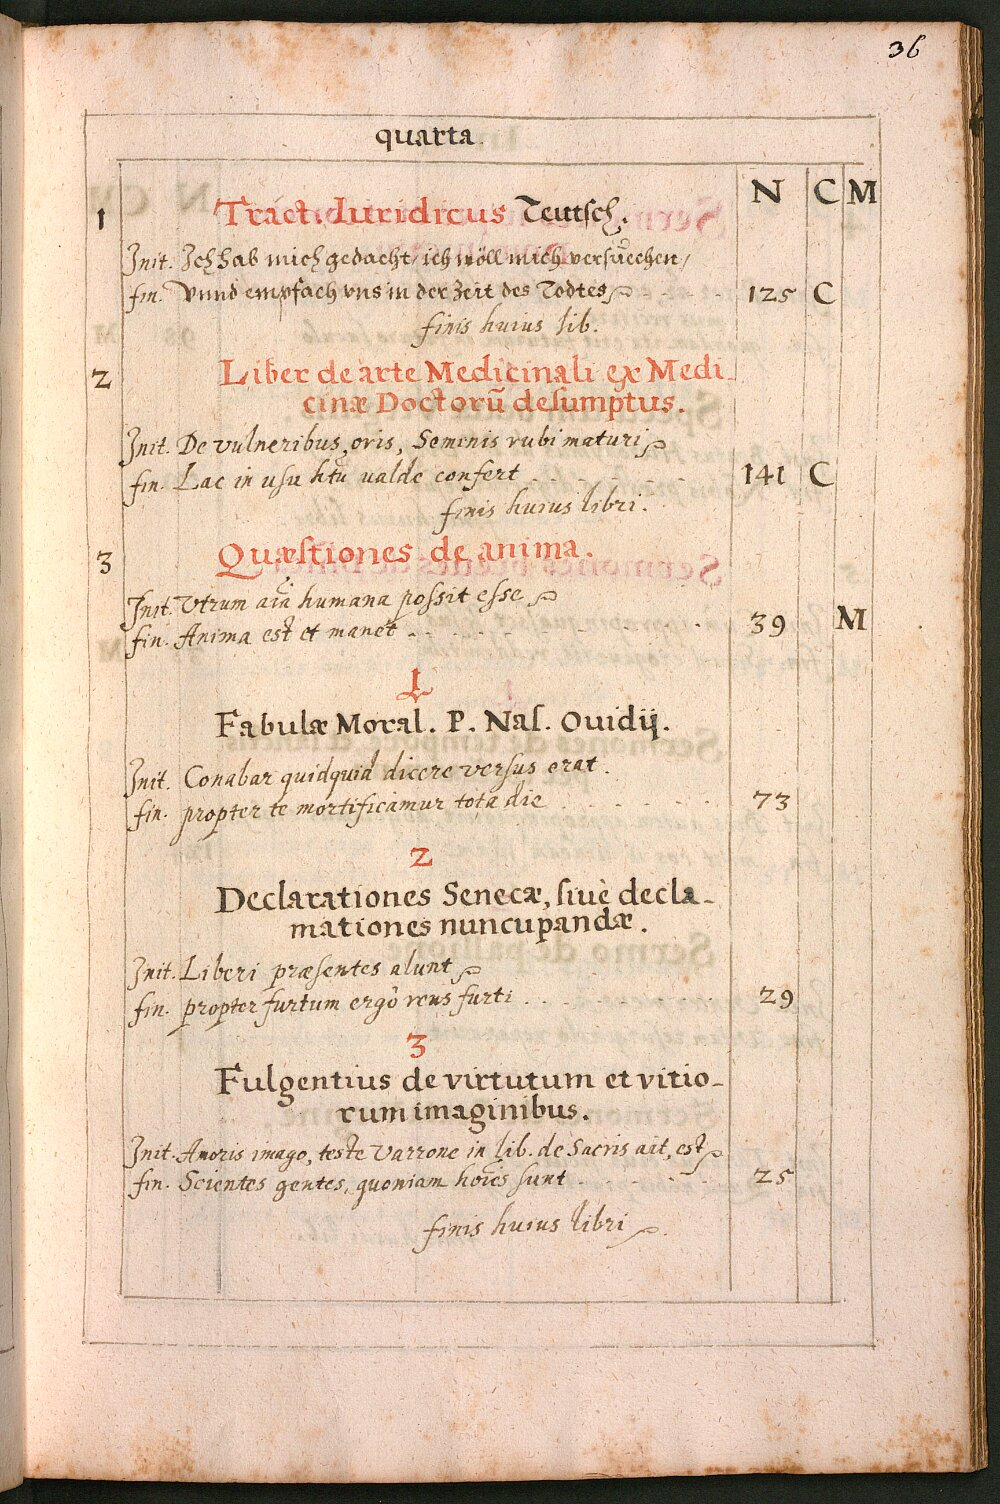 36
quarta.
N C M
1 Tract. Iuridicus Teutsch.
Init. Ich hab mich gedacht, ich wöll mich versuechen,
fin. Vnnd empfach vns in der Zeit des Todtes 125 C
finis huius lib.
2 Liber de arte Medicinali ex Medi-
cinæ Doctorū desumptus.
Init. De vulneribus oris, Seminis rubi maturi
fin. Lac in usu htū valde confert 141 C
finis huius libri.
3 Quæstiones de anima.
Init. Vtrum aīa humana possit esse
fin. Anima est et manet 39 M
1
Fabulæ Moral. P. Nas. Ouidij.
Init. Conabar quidquid dicere versus erat.
fin. propter te mortificamur tota die 73
2
Declarationes Senecæ, siuè decla-
mationes nuncupandæ.
Init. Liberi præsentes alunt
fin. propter furtum ergò reus furti 29
3
Fulgentius de virtutum et vitio-
rum imaginibus.
Init. Amoris imago, teste Varrone in lib. de Sacris ait, est
fin. Scientes gentes, quoniam hoīes sunt 25
finis huius libri